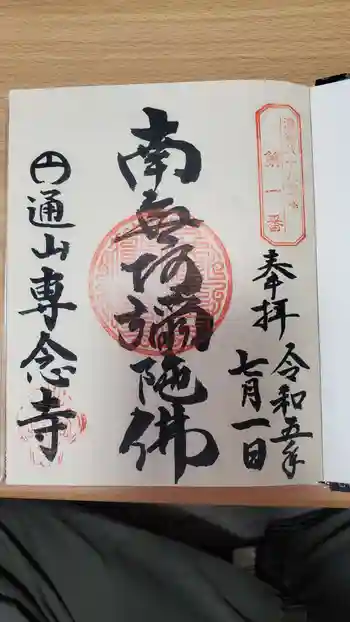 第一番
奉拝
令和五年
七月一日
南無阿弥陀佛
円通山専念寺